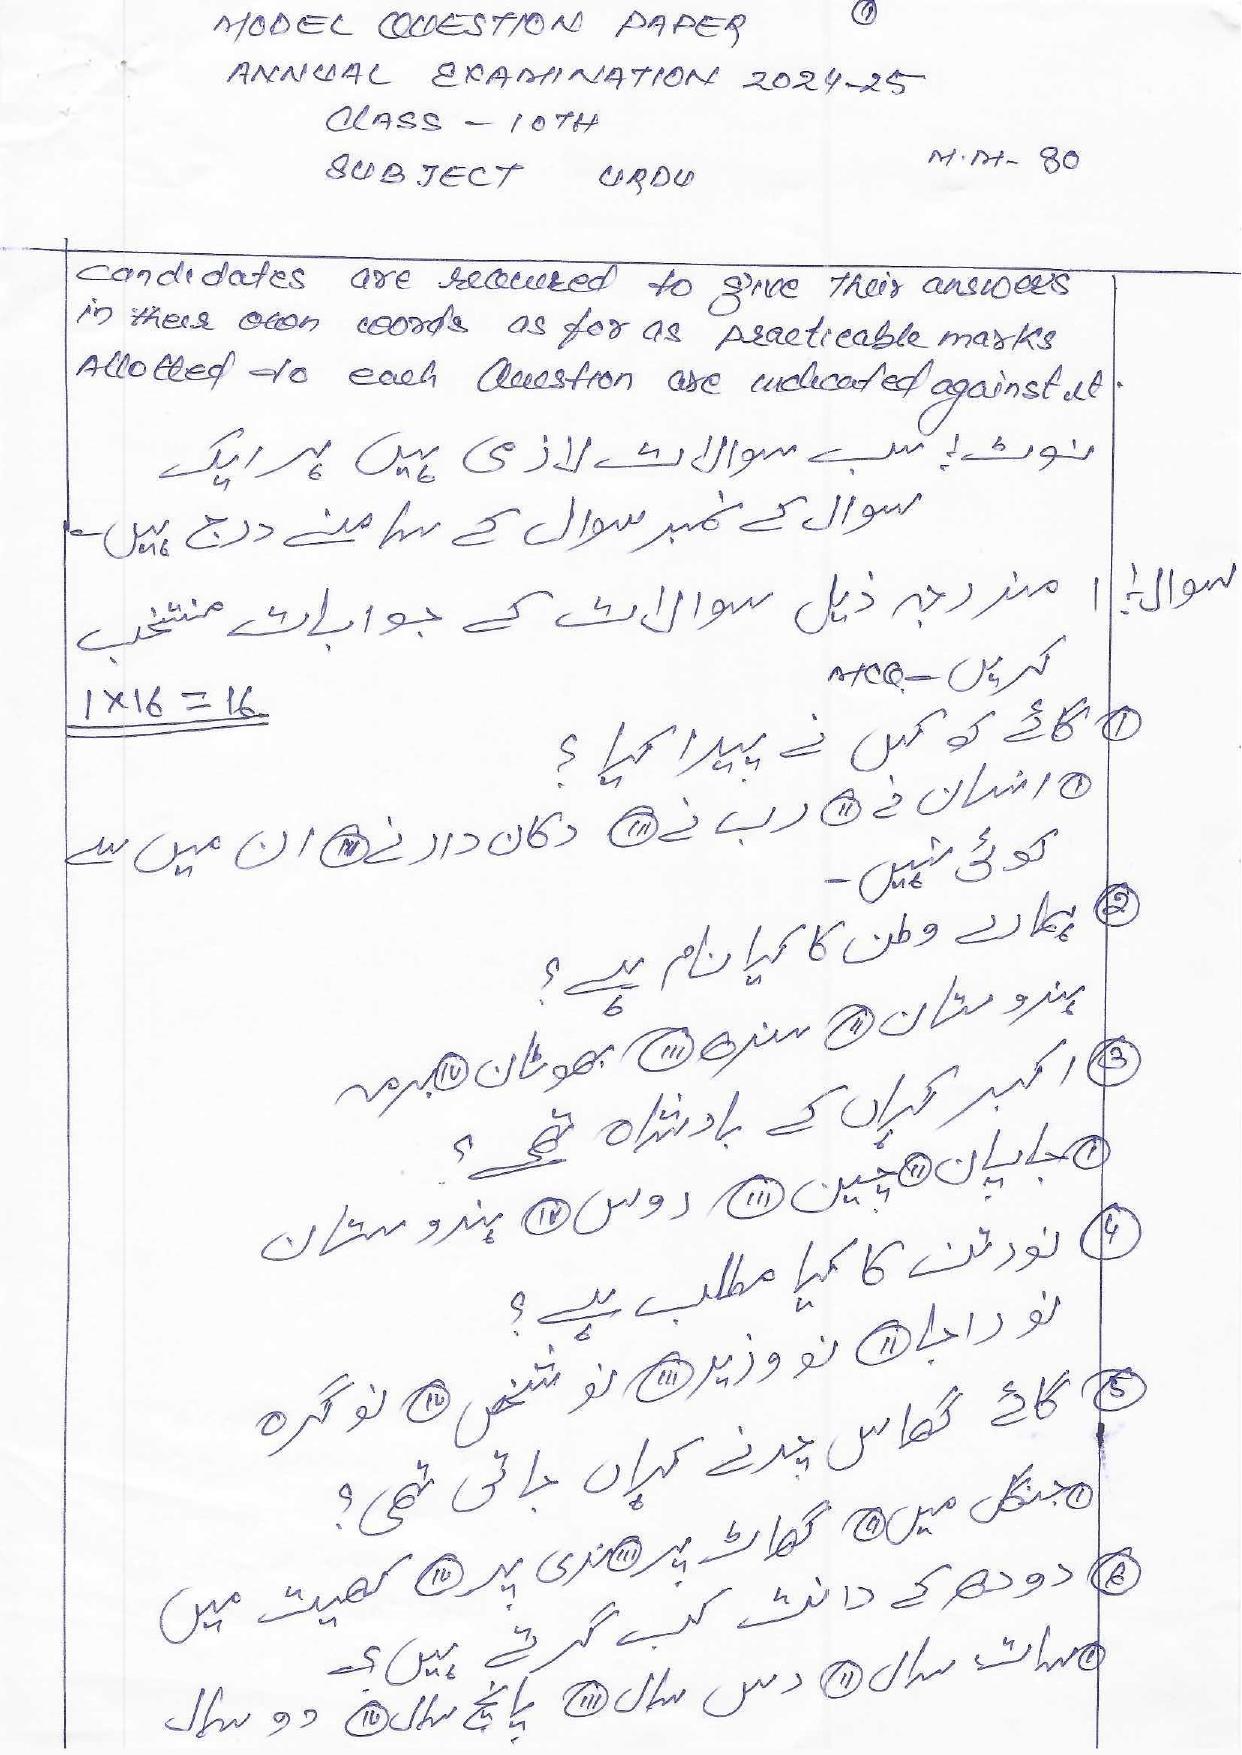 ①
MODEL QUESTION PAPER
ANNUAL EXAMINATION 2024-25
CLASS - 10TH
SUBJECT URDU
M.M- 80
candidates are required to give their answers
in their own words as for as practicable marks
Allotted to each Question are indicated against it.
نوٹ:۔ سب سوالات لازمی ہیں ہر ایک
سوال کے نمبر سوال کے سامنے درج ہیں۔
سوال:۔ ۱ مندرجہ ذیل سوالات کے جوابات منتخب
کریں۔ MCQ
1×16=16
① گائے کو کس نے پیدا کیا ؟
ⓘ انسان نے ⓘⓘ رب نے ⓘⓘⓘ دکان دار نے ⓘⓥ ان میں سے
کوئی نہیں۔
② ہمارے وطن کا کیا نام ہے ؟
ہندوستان ⓘⓘ سندھ ⓘⓘⓘ بھوٹان ⓘⓥ برمہ
③ اکبر کہاں کے بادشاہ تھے ؟
ⓘ جاپان ⓘⓘ چین ⓘⓘⓘ روس ⓘⓥ ہندوستان
④ نورتن کا کیا مطلب ہے ؟
نو راجا ⓘⓘ نو وزیر ⓘⓘⓘ نو شخص ⓘⓥ نو گرہ
⑤ گائے گھاس چرنے کہاں جاتی تھی ؟
ⓘ جنگل میں ⓘⓘ گھاٹ پر ⓘⓘⓘ ندی پر ⓘⓥ کھیت میں
⑥ دودھ کے دانت کب گرتے ہیں ؟
ⓘ سات سال ⓘⓘ دس سال ⓘⓘⓘ پانچ سال ⓘⓥ دو سال